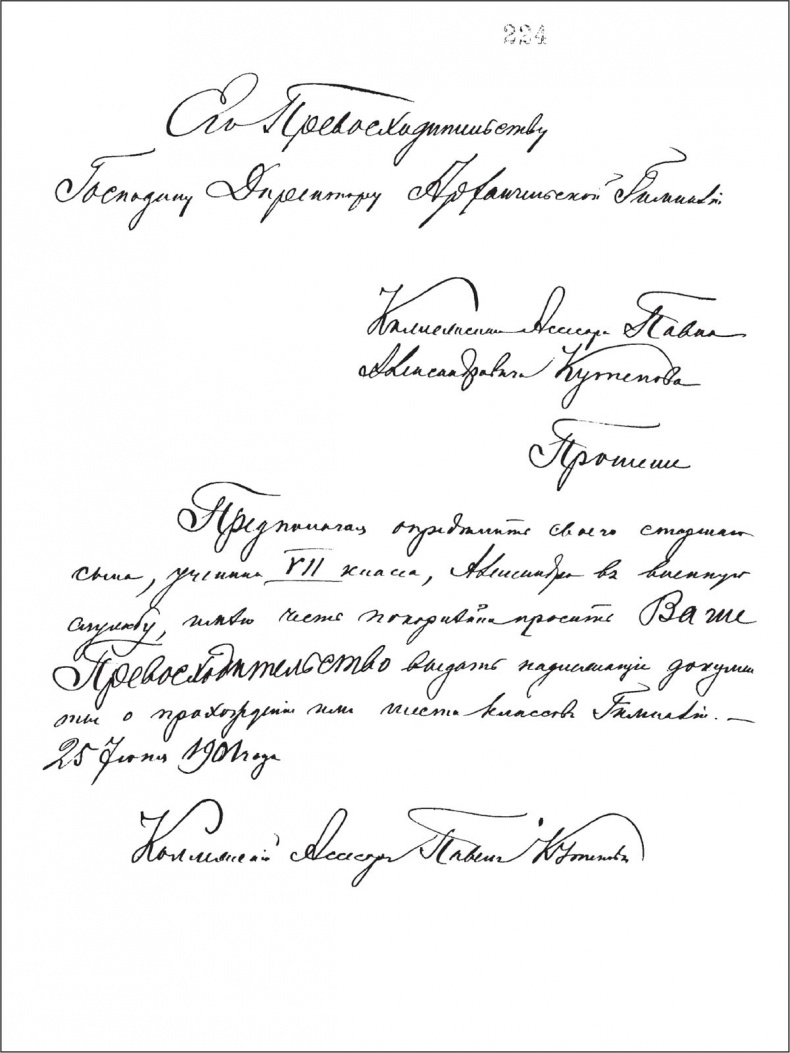 224
Его Превосходительству
Господину Директору Архангельской Гимназіи
Коллежскаго Асессора Павла
Александровича Кутепова
Прошеніе
Предполагая опредѣлить своего старшаго
сына, ученика VII класса, Александра въ военную
службу, имѣю честь покорнѣйше просить Ваше
Превосходительство выдать надлежащіе докумен
ты о прохожденіи имъ шести классовъ Гимназіи. —
25 Іюня 1901 года
Коллежскій Асессоръ Павелъ Кутеповъ